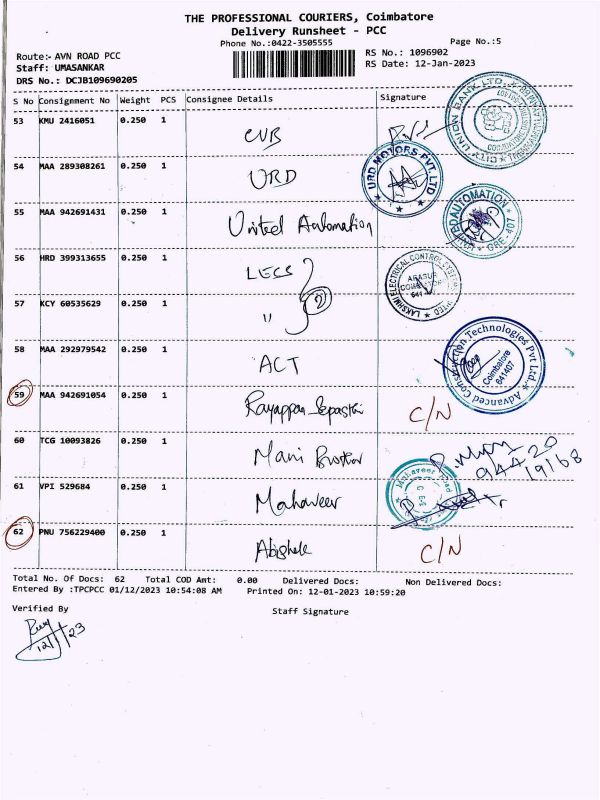 THE PROFESSIONAL COURIERS, Coimbatore
Delivery Runsheet - PCC
Phone No.:0422-3505555 Page No.:5
Route:- AVN ROAD PCC RS No.: 1096902
Staff: UMASANKAR RS Date: 12-Jan-2023
DRS No.: DCJB109690205
S No Consignment No Weight PCS Consignee Details Signature
53 KMU 2416051 0.250 1 CUB
CITY UNION BANK LTD.
54 MAA 289308261 0.250 1 URD
URD MOTORS PVT. LTD
55 MAA 942691431 0.250 1 United Automation
UNITED AUTOMATION
56 HRD 399313655 0.250 1 LECS
LAKSHMI ELECTRICAL CONTROL SYSTEMS LIMITED
ARASUR
57 KCY 60535629 0.250 1 " 2
58 MAA 292979542 0.250 1 ACT
Advanced Construction Technologies Pvt Ltd.,
Coimbatore
641407
59 MAA 942691054 0.250 1 Rayappan C/N
60 TCG 10093826 0.250 1 Mani
94420
19168
61 VPI 529684 0.250 1 Mahaveer
Mahaveer
62 PNU 756229400 0.250 1 Abishek C/N
Total No. Of Docs: 62 Total COD Amt: 0.00 Delivered Docs: Non Delivered Docs:
Entered By :TPCPCC 01/12/2023 10:54:08 AM Printed On: 12-01-2023 10:59:20
Verified By Staff Signature
12/1/23